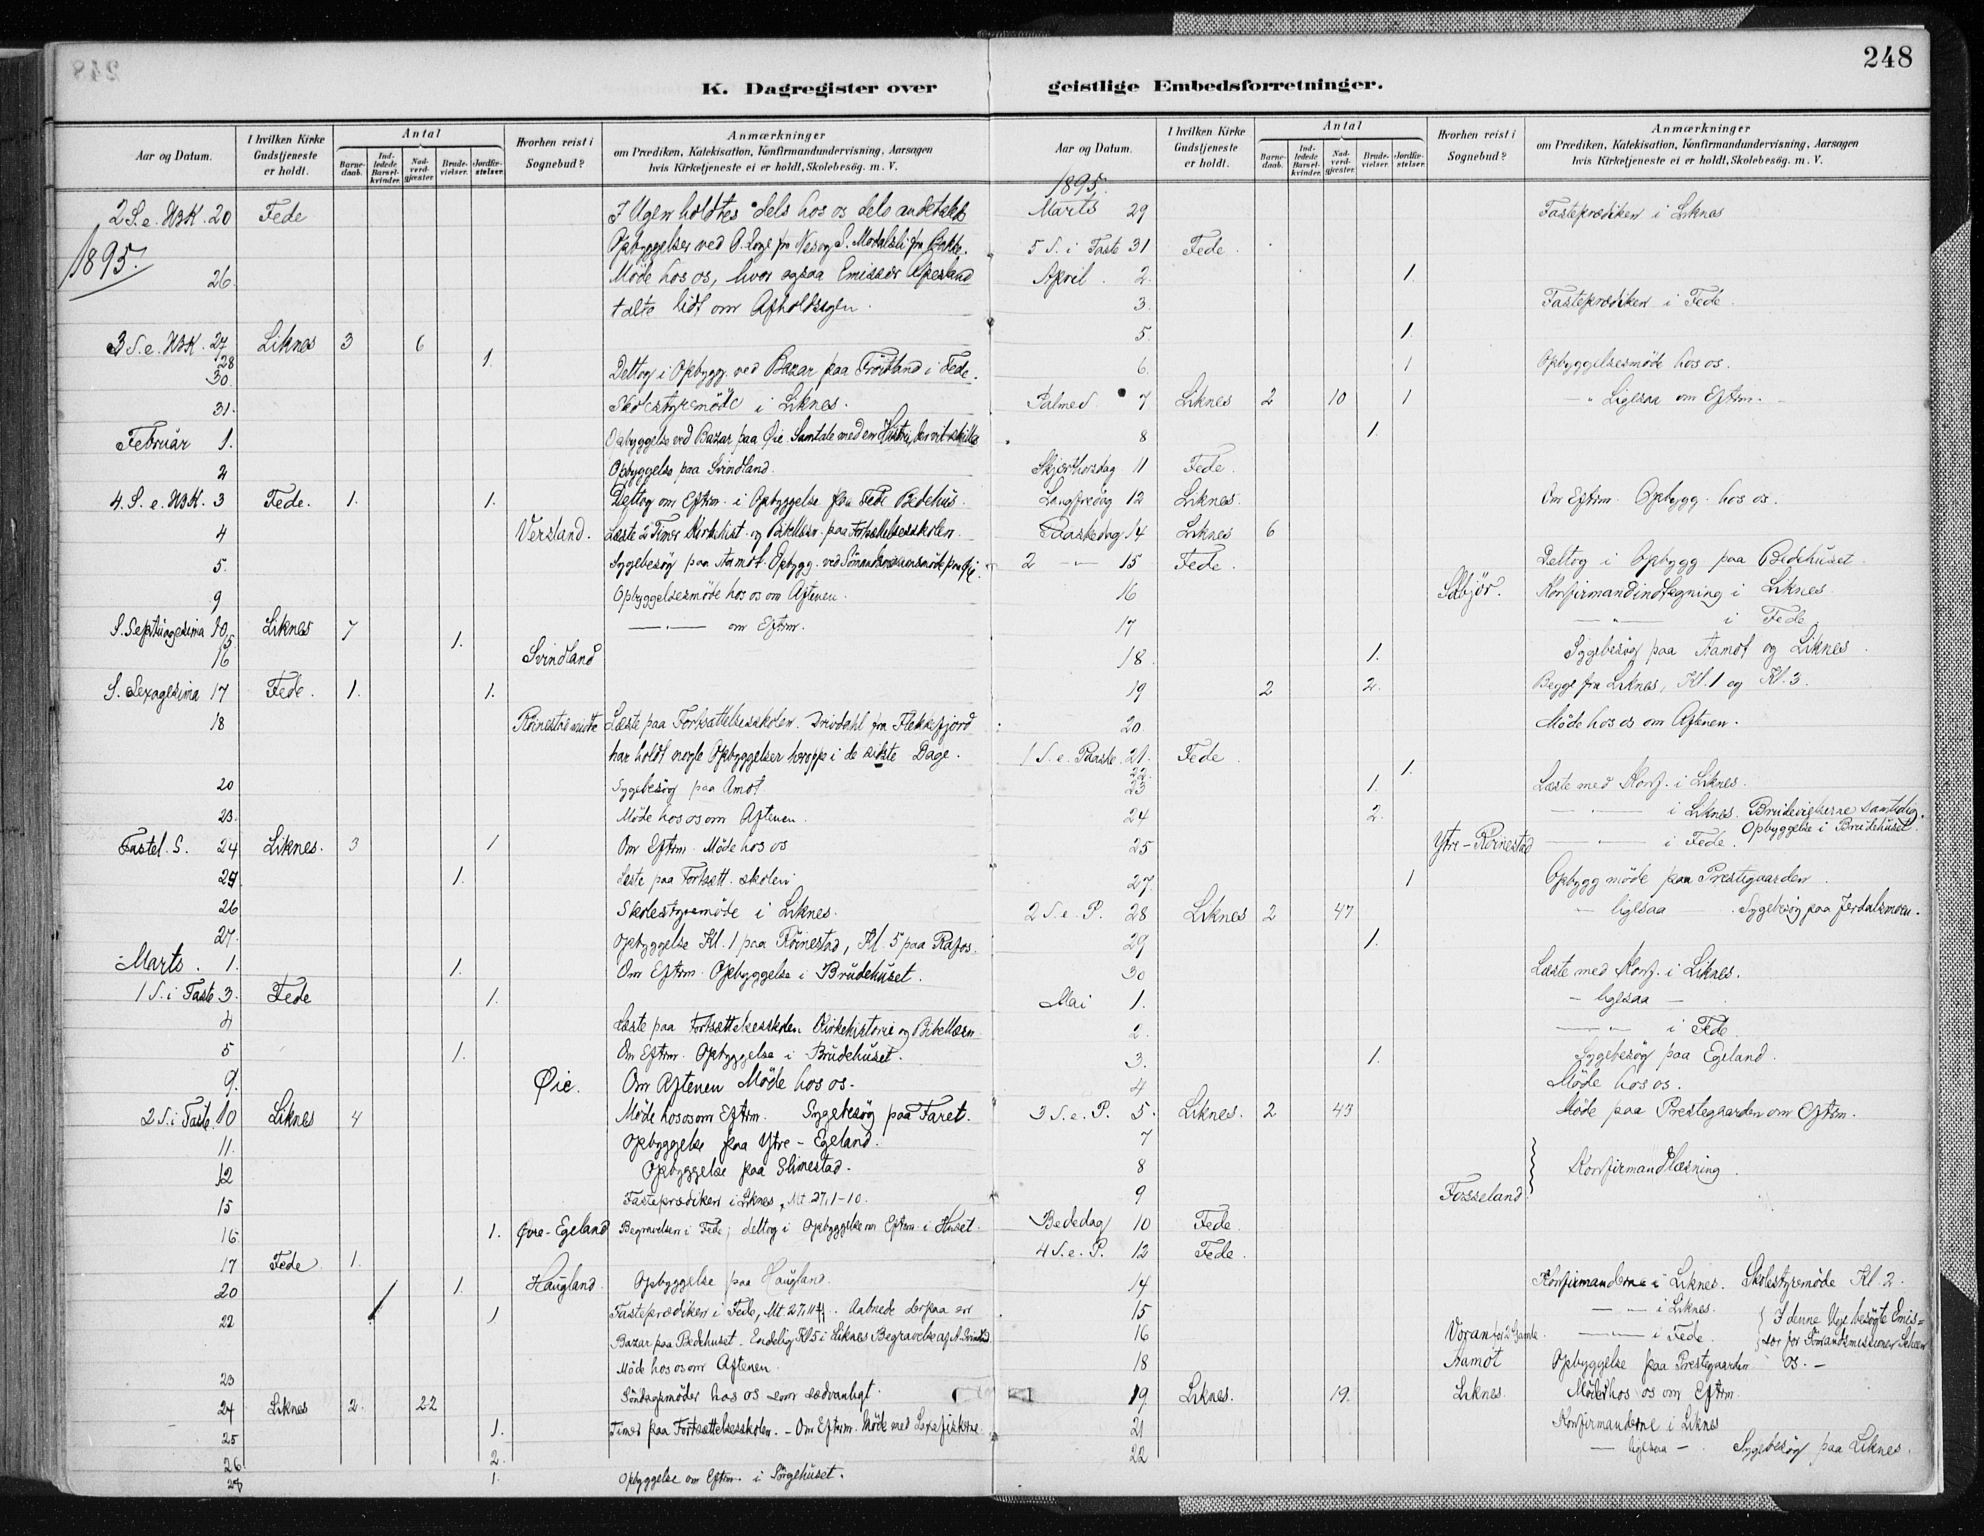 248
K. Dagregister over geistlige Embedsforretninger.
Aar og Datum.
I hvilken Kirke Gudstjeneste er holdt.
Antal
Barne-daab.
Ind-ledede Barsel-kvinder.
Nad-verd-gjæster.
Brude-vielser.
Jordfæ-stelser.
Hvorhen reist i Sognebud?
Anmærkninger
om Prædiken, Katekisation, Konfirmandundervisning, Aarsagen
hvis Kirketjeneste ei er holdt, Skolebesög. m. V.
2 S. e. H3K. 20 Fede J Ugen holdtes dels hos os dels andetsteds
1895. Opbyggelser ved
26. Möde hos os, hvor ogsaa Emissær
talte lidt om Afholdssagen.
3 S. e. H3K. 27 Liknes 3 6
28 1.
30. Deltog i Opbygg. ved Bazar paa Fröitland i Fede.
31. Skolestyremöde i Liknes.
Februar 1. Opbyggelse ved Bazar paa Øie. Samtale med en
2 Opbyggelse paa Svindland.
4. S. e. H3K. 3 Fede. 1. 1. Deltog om Eftrm. i Opbyggelse paa Fede Bedehus.
4 Versland. Læste 2 Timer Kirkehist. og Bibellæsn. paa Fortsættelsesskolen.
5. Sygebesög paa Aamot. Opbygg. ved
9 Opbyggelsesmöde hos os om Aftenen.
S. Septuagesima 10 Liknes 7 — " — om Eftrm.
15 1.
16 Svindland
S. Sexagesima 17 Fede. 1. 1.
18 Röinestad Læste paa Fortsættelsesskolen. fra Flekkefjord
har holdt nogle Opbyggelser heroppe i de sidste Dage.
20 Sygebesög paa Amot
23. Möde hos os om Aftenen.
Fastel. S. 24 Liknes. 3 1 Om Eftrm. Möde hos os
25 1. Læste paa Fortsætt. skolen
26 Skolestyremöde i Liknes.
27. Opbyggelse Kl. 1 paa Röinestad, Kl. 5 paa Rafos.
Marts. 1. 1. Om Eftrm. Opbyggelse i Brudehuset.
1 S. i Faste 3. Fede 1.
4 Læste paa Fortsættelsesskolen Kirkehistorie og Bibellæsn
5 1. Om Eftrm. Opbyggelse i Brudehuset.
9. Øie. Om Aftenen Möde hos os.
2 S. i Faste 10 Liknes 4 Möde hos os om Eftrm. Sygebesög paa Faret.
11. Opbyggelse paa Ytre-Egeland.
12 Opbyggelse paa Slimestad.
15 Fasteprædiken i Liknes, Mt. 27, 1-10.
16 1. Øvre-Egeland Begravelsen i Fede; deltog i Opbyggelse om Eftrm. i Huset.
17 Fede 1.
20 1. Haugland. Opbyggelse paa Haugland.
22 1 Fasteprædiken i Fede, Mt 27, 11 ff. Aabnede derpaa en
Bazar paa Bedehuset. Endelig Kl 5 i Liknes Begravelse af
23 Möde hos os om Aftenen.
24 Liknes 2. 22 Söndagsmöder hos os som sædvanligt.
25 1. Timer paa Fortsættelsesskolen. - Om Eftrm. Möde med
26 2.
28 1. Opbyggelse om Eftrm. i Sörgehuset.
Aar og Datum.
I hvilken Kirke Gudstjeneste er holdt.
Antal
Barne-daab.
Ind-ledede Barsel-kvinder.
Nad-verd-gjæster.
Brude-vielser.
Jordfæ-stelser.
Hvorhen reist i Sognebud?
Anmærkninger
om Prædiken, Katekisation, Konfirmandundervisning, Aarsagen
hvis Kirketjeneste ei er holdt, Skolebesög. m. V.
1895.
Marts 29 Fasteprædiken i Liknes
5 S. i Faste 31 Fede.
April. 2. 1.
3. Fasteprædiken i Fede.
5. 1.
6. 1 Opbyggelsesmöde hos os.
Palmes. 7 Liknes 2 10 1 — " Ligesaa om Eftrm. —
8 1.
Skjærthorsdag 11 Fede.
Langfredag 12 Liknes. Om Eftrm. Opbygg. hos os.
Paaskedag 14 Liknes 6
2 — " — 15 Fede. Deltog i Opbygg paa Bedehuset.
16 Konfirmandindtegning i Liknes.
17 — " — i Fede
18. 1. Sygebesög paa Aamot og Liknes.
19 2 2. Begge fra Liknes, Kl. 1 og Kl. 3.
20 Möde hos os om Aftenen.
1 S. e. Paaske. 21. Fede
22. 1.
23 1. Læste med Konf. i Liknes.
24 2. — " — i Liknes. Brudevielserne samtidig.
25 Ytre-Röinestad — " — i Fede. Opbyggelse i Brudehuset.
27. 1 Opbygg möde paa Prestegaarden.
2 S. e. P. 28 Liknes 2 47 — ligesaa — . Sygebesög paa Jerdalsmoen.
29 1.
30 Læste med Konf. i Liknes.
Mai 1. — ligesaa —
2. — " — i Fede.
3. 1. Sygebesög paa Egeland.
4 Möde hos os.
3 S. e. P. 5. Liknes. 2 43 Möde paa Prestegaarden om Eftrm.
7
8 Konfirmandlæsning.
9 Fosseland
Bededag 10 Fede.
4 S. e. P. 12 Fede.
14 Konfirmanderne i Liknes. Skolestyremöde Kl. 2.
15 — " — i Liknes. J denne Uge besögte Emis=
16 — " — i Fede. sær for Sömandsmissionen
18 Aamot Opbyggelse paa Prestegaarden os. —
19. Liknes. 19. Liknes. Möde hos os om Eftrm.
21 Konfirmanderne i Liknes
22 — ligesaa — . Sygebesög paa Liknes.